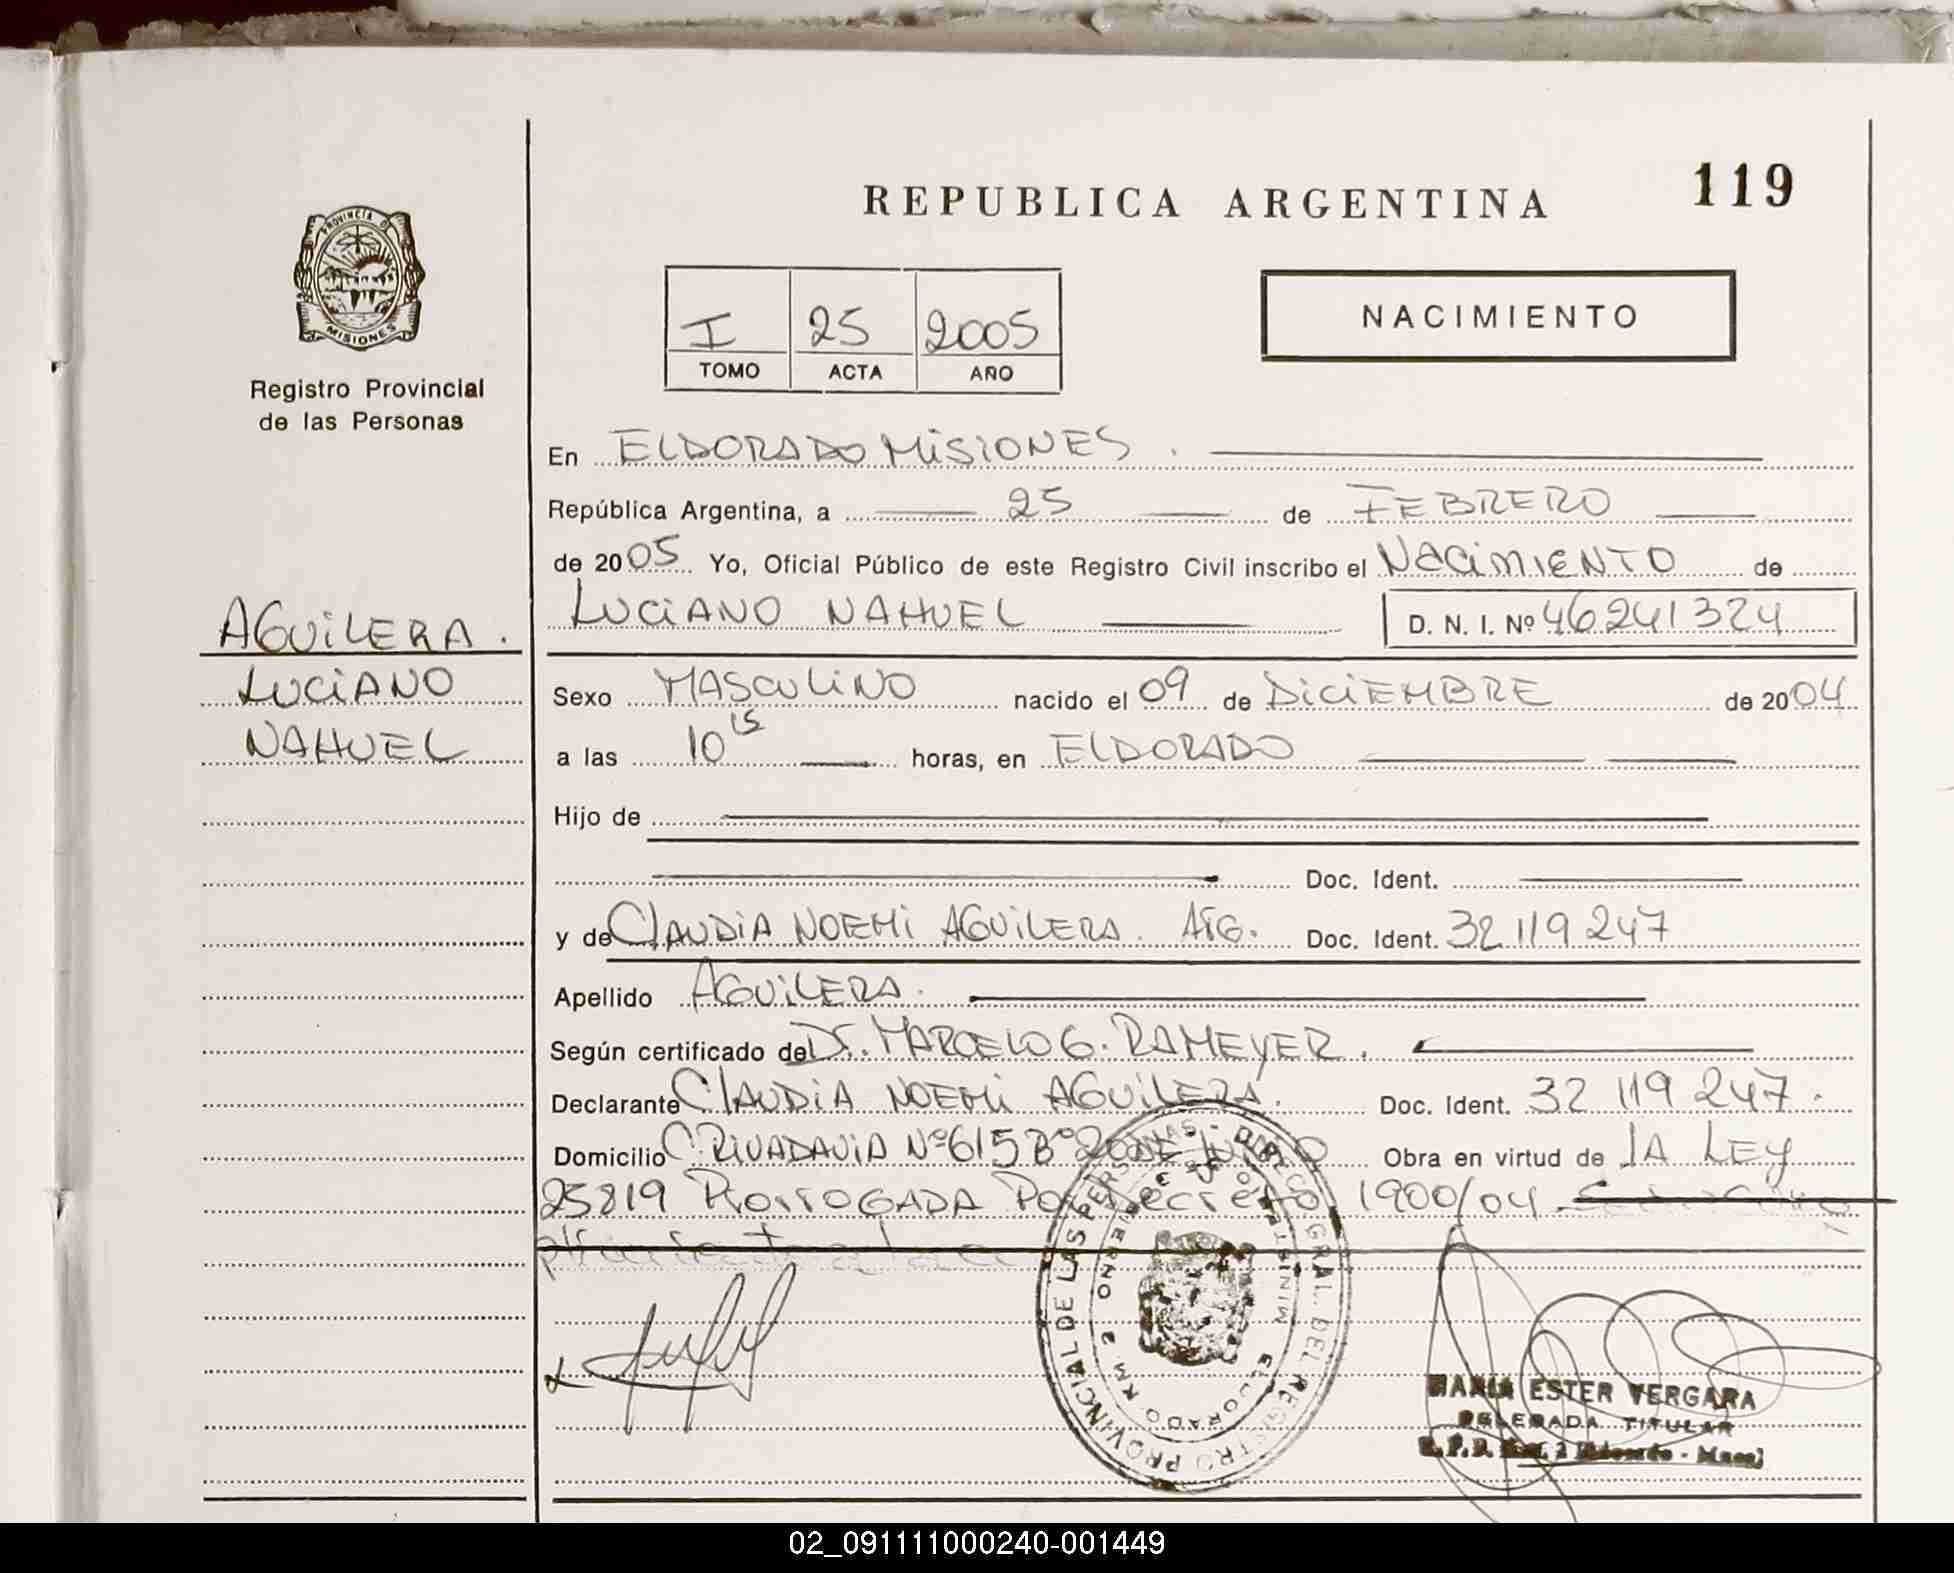 REPUBLICA ARGENTINA
119
PROVINCIA DE
MISIONES
Registro Provincial
de las Personas
I 25 2005
TOMO ACTA AÑO
NACIMIENTO
En ELDORADO MISIONES.
República Argentina, a 25 de FEBRERO
de 2005 Yo, Oficial Público de este Registro Civil inscribo el NACIMIENTO de
LUCIANO NAHUEL D. N. I. Nº 46241324
AGUILERA.
LUCIANO
NAHUEL
Sexo MASCULINO nacido el 09 de DICIEMBRE de 2004
a las 10 15 horas, en ELDORADO
Hijo de
Doc. Ident.
y de CLAUDIA NOEMI AGUILERA. Arg. Doc. Ident. 32 119 247
Apellido AGUILERA.
Según certificado de Dr. MARCELO G. RAMEYER.
Declarante CLAUDIA NOEMI AGUILERA. Doc. Ident. 32 119 247.
Domicilio C RIVADAVIA Nº 615 Bº 20 DE JUNIO Obra en virtud de LA LEY
25819 PRORROGADA Por Decreto 1900/04
DIREC. GRAL. DEL REGISTRO PROVINCIAL DE LAS PERSONAS
ELDORADO KM 2
MARIA ESTER VERGARA
DELEGADA TITULAR
02_091111000240-001449